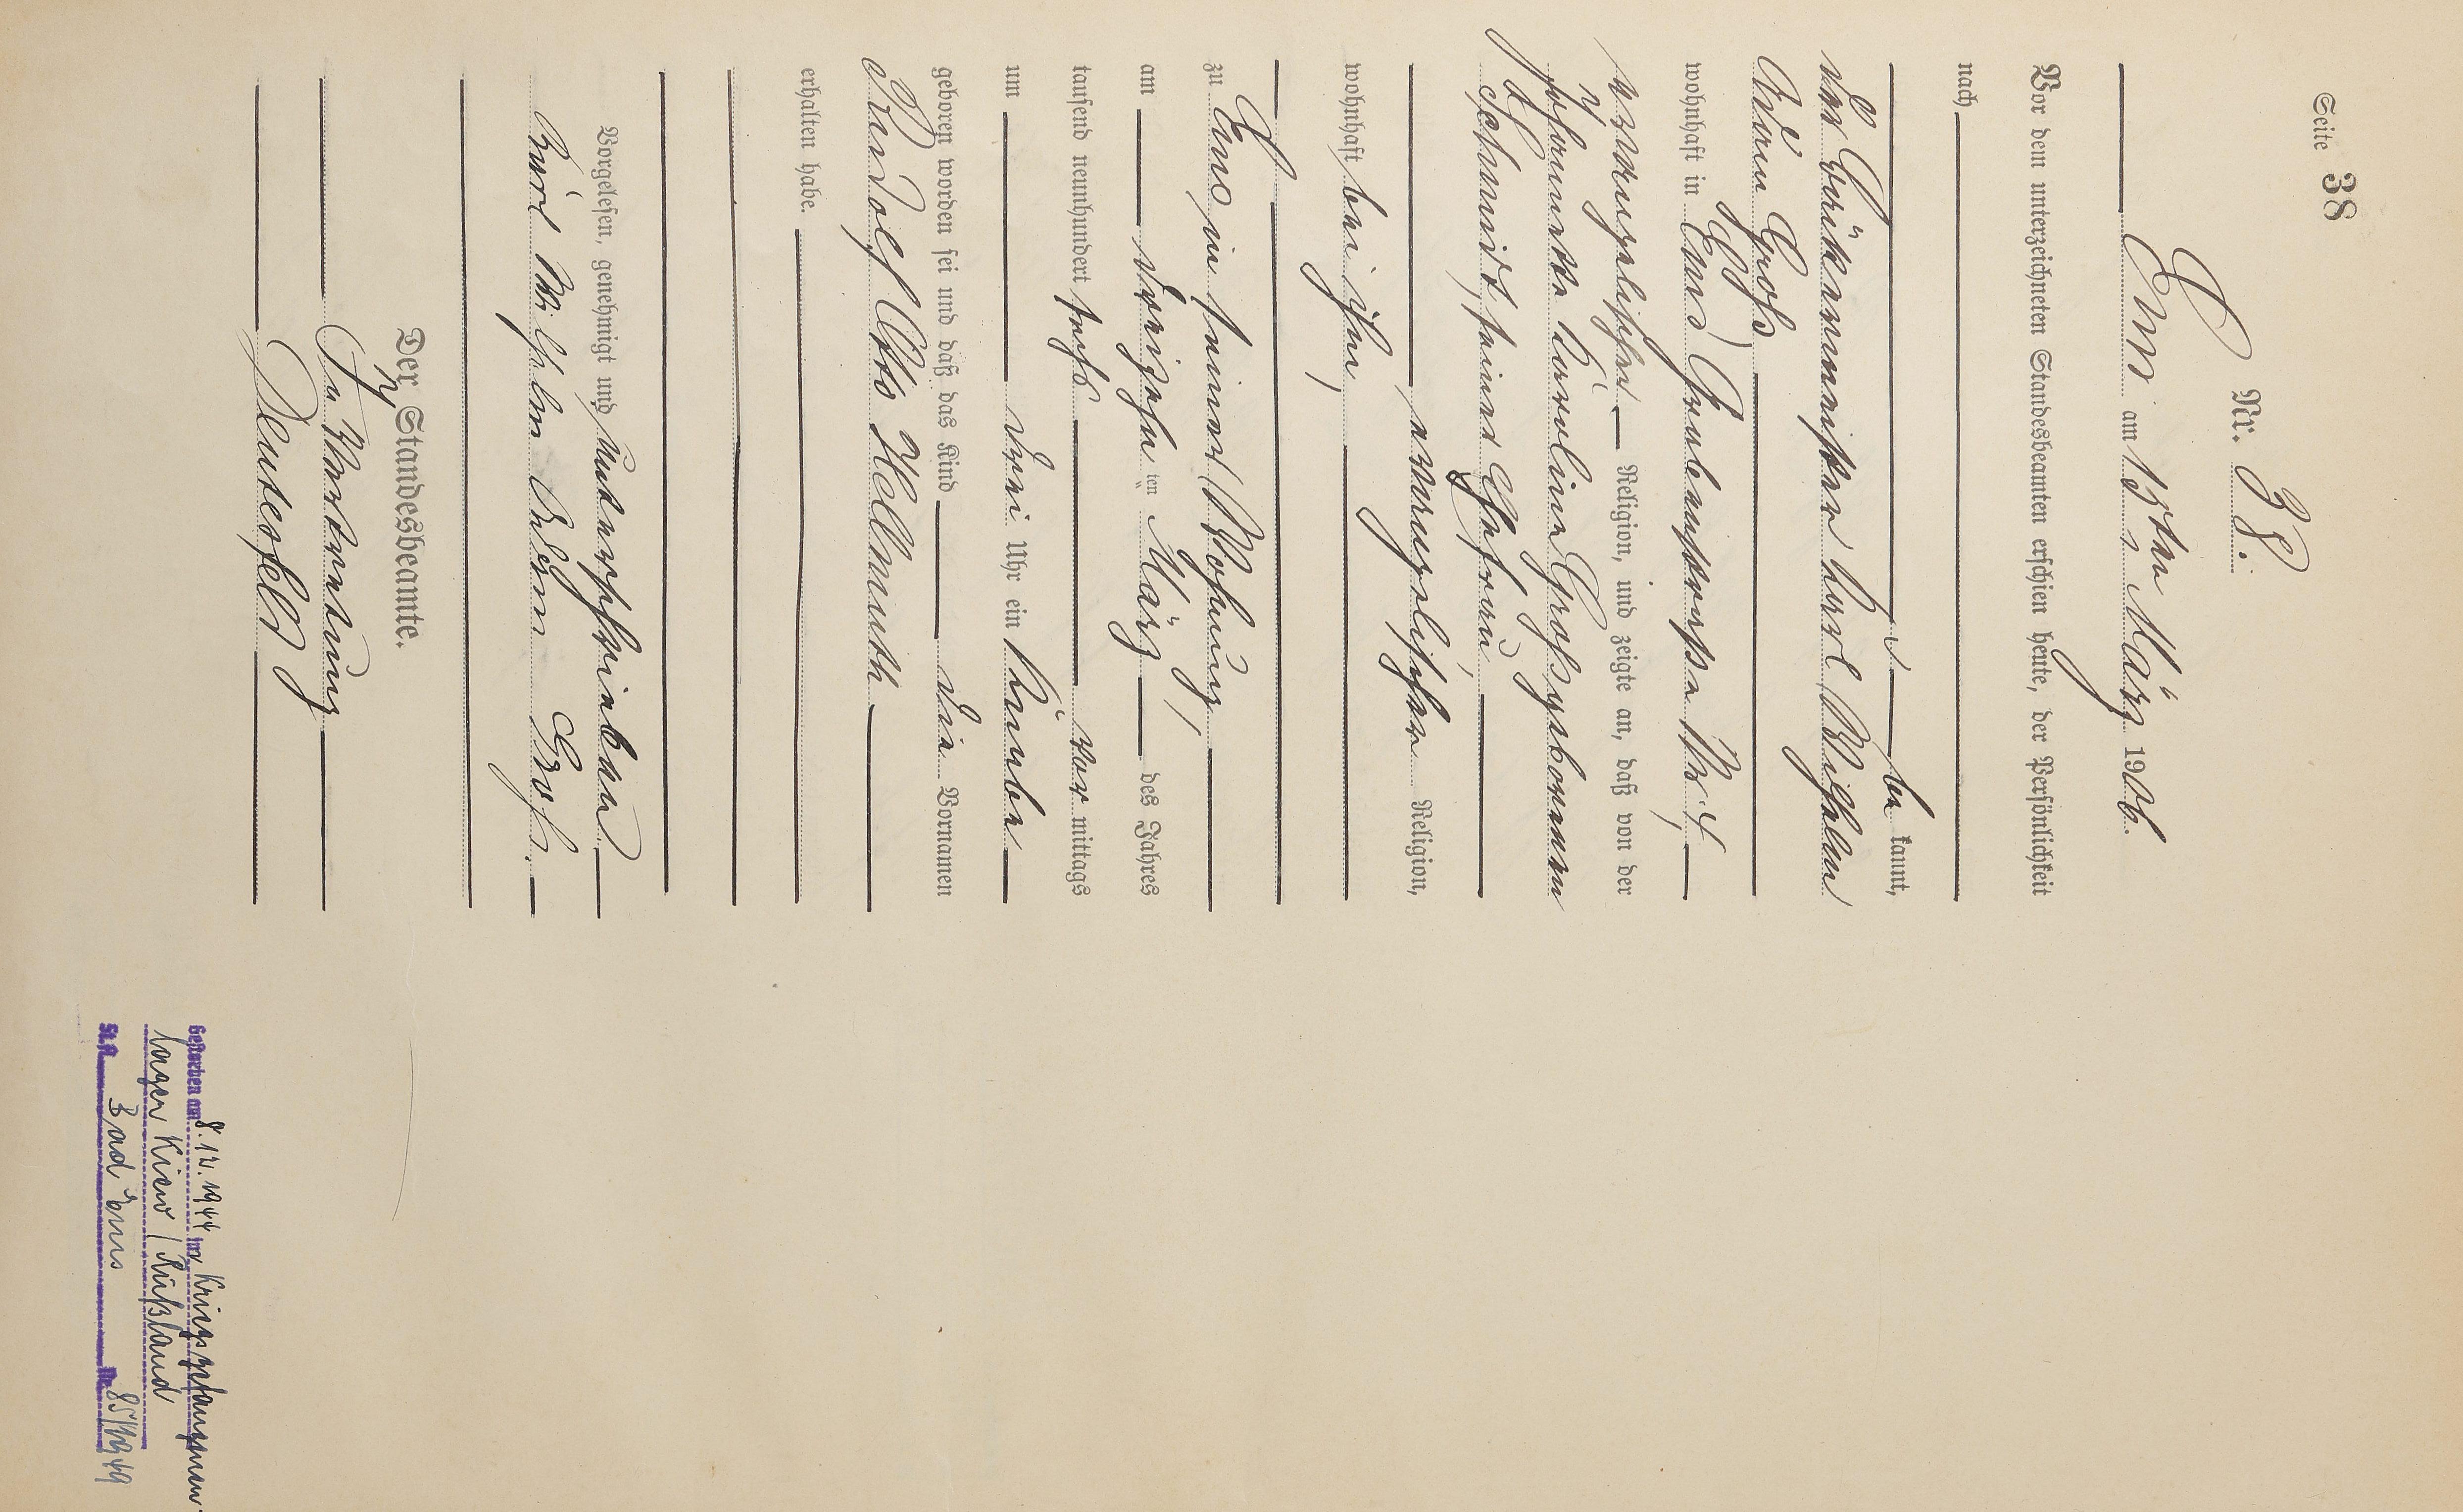 Seite 38
Nr. 38.
Ems am 15ten März 1906.
Vor dem unterzeichneten Standesbeamten erschien heute, der Persönlichkeit
nach
be kannt,
der Büreaumeister Karl Wilhelm
Adam Groß
wohnhaft in Ems, Grabenstraße Nr. 4,
evangelischer Religion, und zeigte an, daß von der
Johannette Karoline Groß geborenen
Schmidt, seiner Ehefrau,
evangelischer Religion,
wohnhaft bei ihm,
zu Ems in seiner Wohnung,
am dreizehn ten März des Jahres
tausend neunhundert sechs vor mittags
um drei Uhr ein Knabe
geboren worden sei und daß das Kind die Vornamen
Rudolf Otto Hellmuth
erhalten habe.
Vorgelesen, genehmigt und unterschrieben
Karl Wilhelm Adam Groß.
Der Standesbeamte.
In Vertretung
Deutesfeld
Gestorben am 8.12.1944 im Kriegsgefangenen-
lager Kiew / Rußland
St.A. Bad Ems Nr. 85/1949